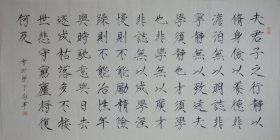 夫君子之行靜以
脩身儉以養德非
澹泊無以明志非
寧靜無以致遠夫
學須靜也才須學
也非學無以廣才
非志無以成學淫
慢則不能勵精險
躁則不能冶性年
與時馳意與日去
遂成枯落多不接
世悲守窮廬將復
何及